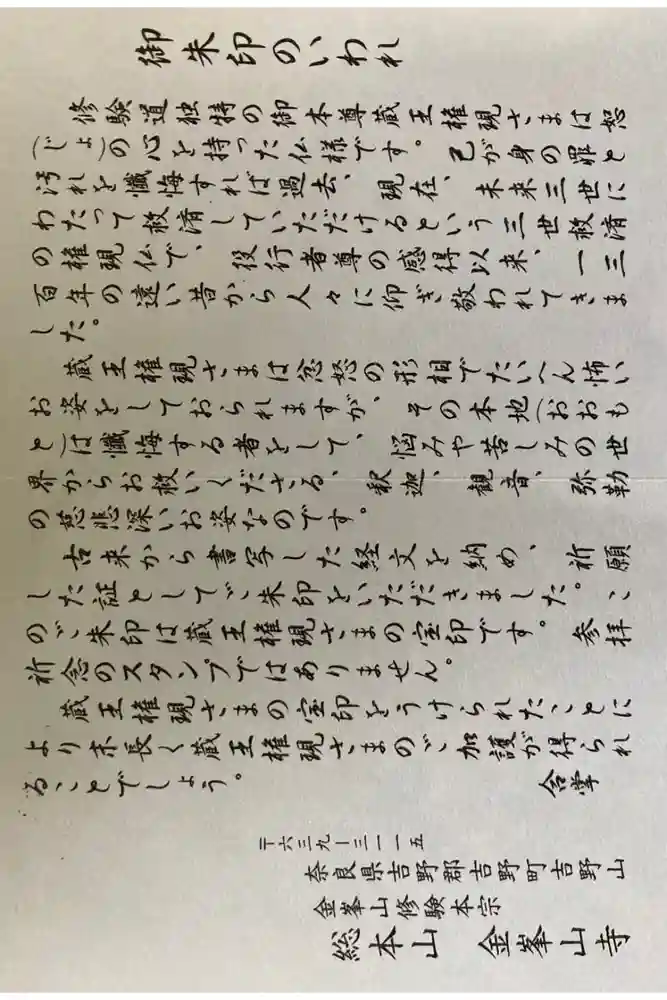 御朱印のいわれ
修験道独特の御本尊蔵王権現さまは恕
(じょ)の心を持った仏様です。己が身の罪と
汚れを懺悔すれば過去、現在、未来三世に
わたって救済していただけるという三世救済
の権現仏で、役行者尊の感得以来、一三
百年の遠い昔から人々に仰ぎ敬われてきま
した。
蔵王権現さまは忿怒の形相でたいへん怖い
お姿をしておられますが、その本地(おおも
と)は懺悔する者をして、悩みや苦しみの世
界からお救いくださる、釈迦、観音、弥勒
の慈悲深いお姿なのです。
古来から書写した経文を納め、祈願
した証としてご朱印をいただきました。こ
のご朱印は蔵王権現さまの宝印です。参拝
祈念のスタンプではありません。
蔵王権現さまの宝印をうけられたことに
より末長く蔵王権現さまのご加護が得られ
ることでしょう。 合掌
〒六三九ー三一一五
奈良県吉野郡吉野町吉野山
金峯山修験本宗
総本山 金峯山寺